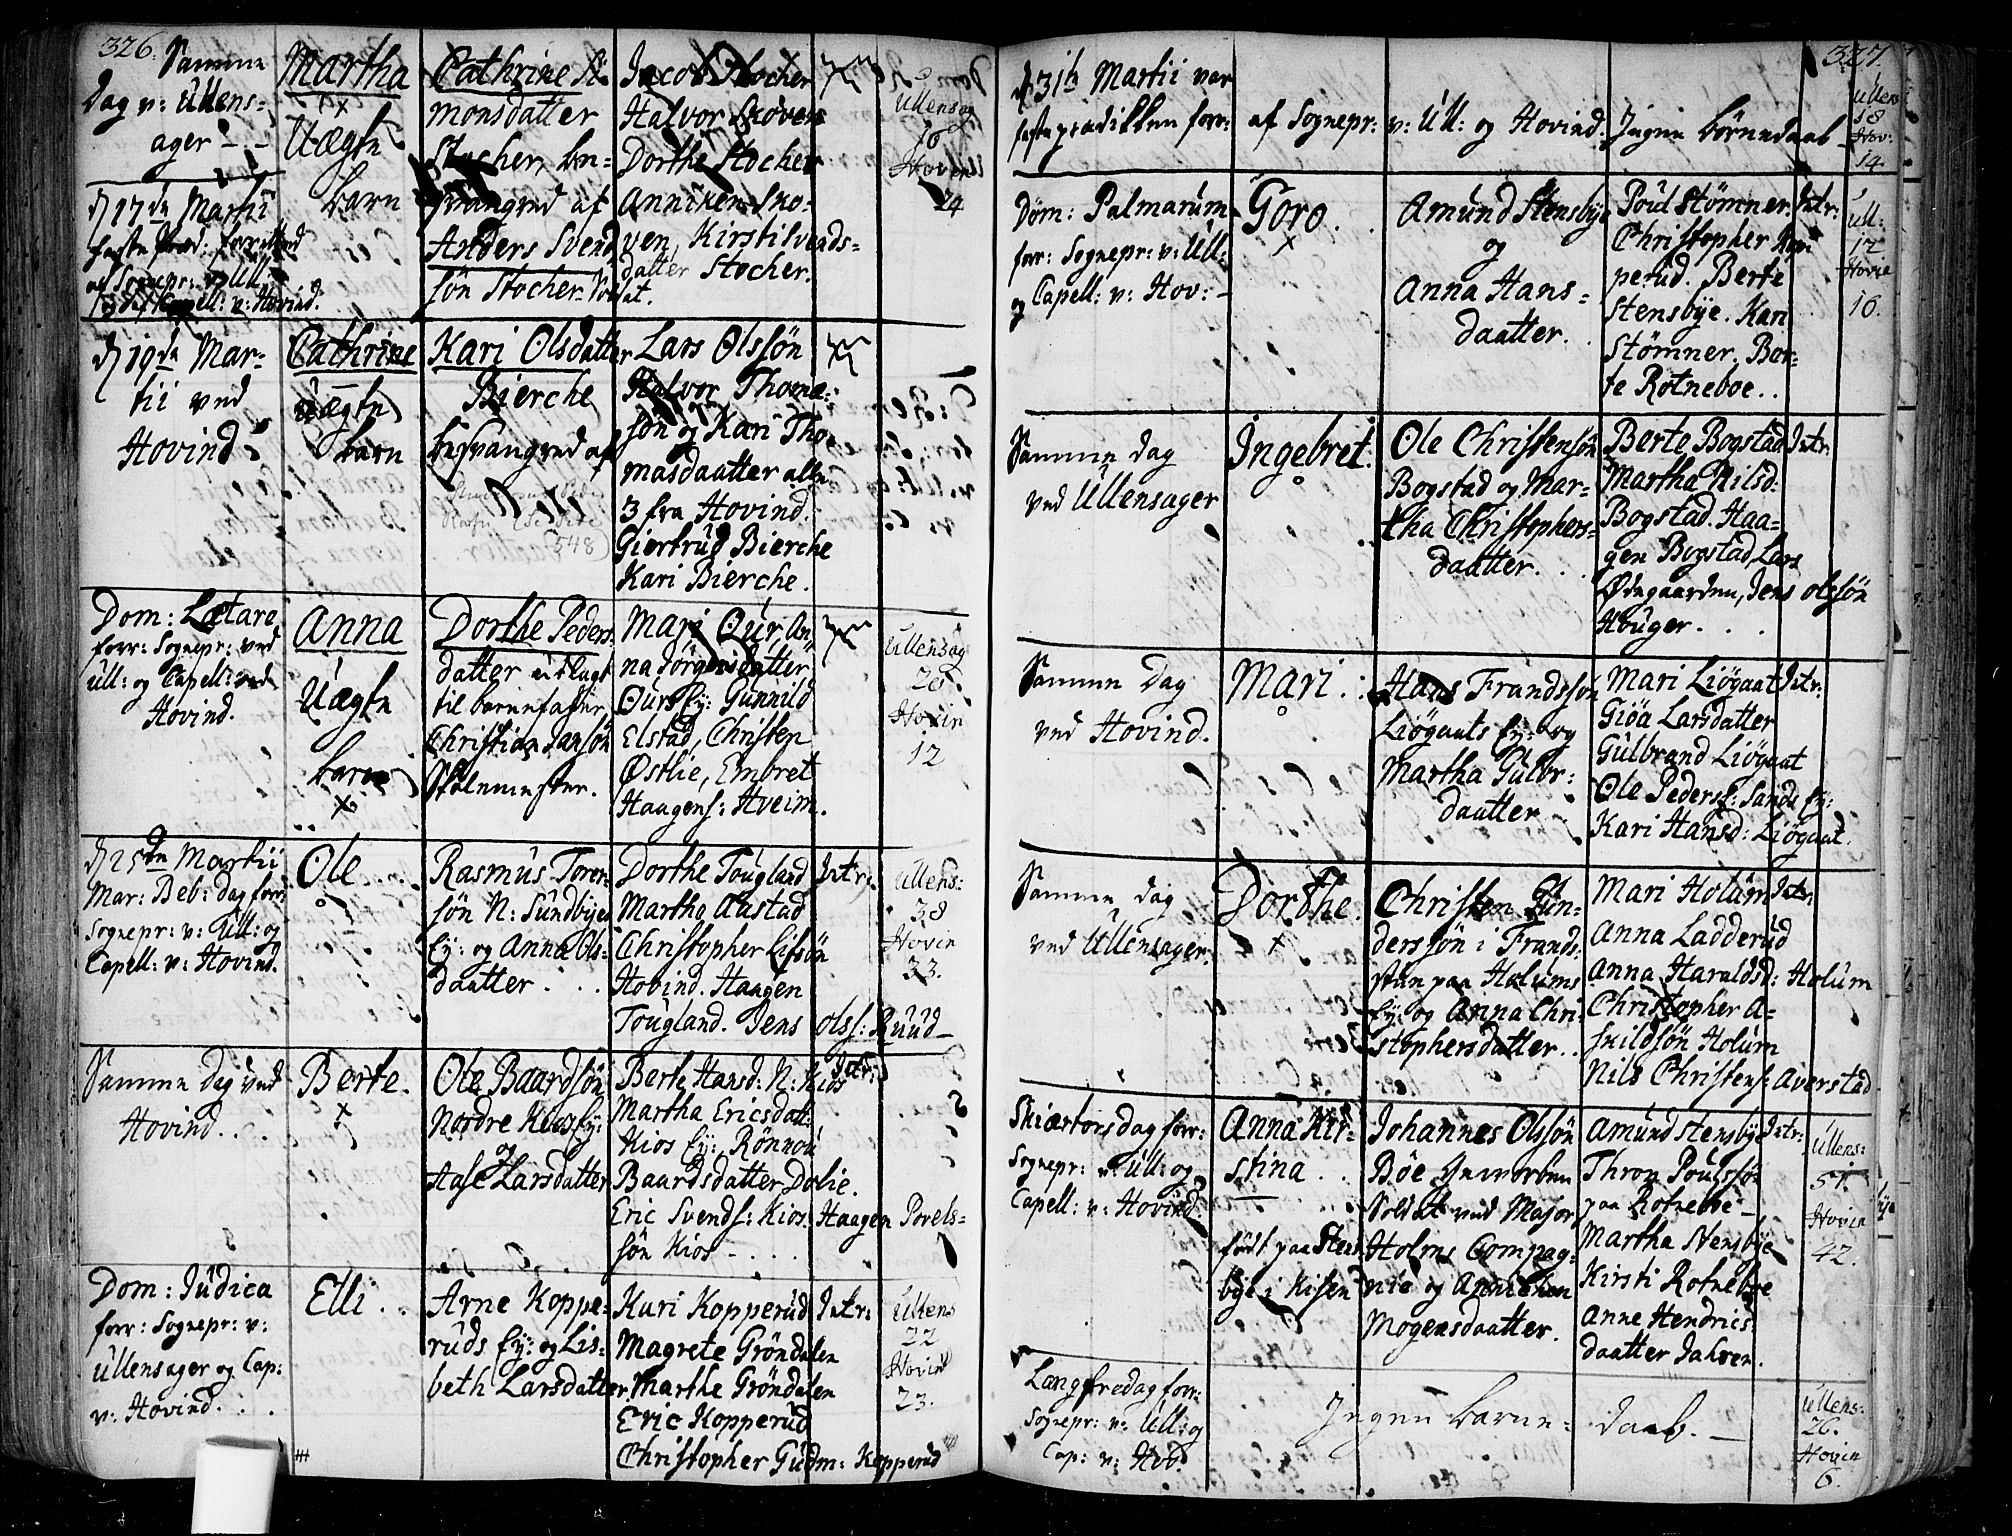 326.
Samme
Dag v: Ullens-
ager - -
Martha
Uægte
barn
Cathrine Si-
monsdatter
Stocher, be-
svangred af
Anders Svend
søn Stocher Soldat.
Jacob Stocher
Halvor Skoven
Dorthe Stocher
Anniken Sko-
ven, Kirsti Svends-
datter Stocher.
Ullensag
16
Hovin
24
d 17de Martii
faste præd: forretted
af Sognepr: v: Ull:
Capell: v: Hovind.
d 19de Mar-
tii ved
Hovind
Cathrine
Uægte
barn
Kari Olsdatter
Bierche
besvangred af
Lars Olssøn
Halvor Thoma-
søn og Kari Tho-
masdaatter alle
3 fra Hovind.
Giertrud Bierche
Kari Bierche.
Dom: Lætare
forr: Sognepr: ved
Ull: og Capell: ved
Hovind.
Anna
Uægte
barn
Dorthe Peders
datter udlagt
til barnefader
Christian Jansøn
Mari Our An
na Jörgensdatter
Ours Ey: Gunnild
Elstad, Christen
Østlie, Embret
Haagens: Hveim.
Ullensag
20
Hovin
12
d 25de Martii
Mar: Beb: Dag forr:
Sognepr: v: Ull: og
Capell: v: Hovind.
Ole
Rasmus Toren-
søn N: Sundbyes
Ey: og Anna Ols-
daatter.
Dorthe Tougland
Martha Austad
Christopher Lifsøn
Hovind. Haagen
Tougland. Jens Olss: Ruud
Intr:
Ullens:
38
Hovin
33.
Samme Dag ved
Hovind.
Berte.
Ole Baardsøn
Nordre Kios Ey:
og
Aase Larsdatter
Berte Hansd: N: Kios
Martha Ericsdatt:
Kios Ey: Rönnou
Baardsdatter Dælie.
Eric Svends: Kios. Haagen Povels-
søn Kios - . . .
Intr:
Dom: Judica
forr: Sognepr: v:
Ullensager og Cap:
v: Hovind.
Elli
Arne Koppe-
ruds Ey: og Lis-
beth Larsdatter
Kari Kopperud
Magrete Gröndalen
Marthe Gröndalen
Eric Kopperud
Christopher Gudm: Kopperud
Intr:
Ullens
22
Hovin
23.
327.
d 31te Martii var
faste prædiken forr: af Sognepr: v: Ull: og Hovind. Ingen börnedaab
Ullens
18
Hov:
14.
Dom: Palmarum
forr: Sognepr: v: Ull:
og Capell: v: Hov: -
Goro.
Amund Stensbye
og
Anna Hans-
daatter.
Poul Stömner.
Christopher Kop
perud. Berte
Stensbye. Kari
Stömner, Ber-
te Rotneboe.
Intr:
Ull:
12
Hovin
16.
Samme Dag
ved Ullensager
Ingebret.
Ole Christensøn
Bogstad og Mar-
tha Christophers-
daatter.
Berte Bogstad
Martha Nilsd:
Bogstad. Haa-
gen Bogstad, Lars
Ødegaarden, Jens Olssøn
Houger.
Intr:
Samme Dag
ved Hovind.
Mari.
Hans Frandssøn
Liögaats Ey: og
Martha Gulbr:
daatter
Mari Liögaat
Giöa Larsdatter
Gulbrand Liögaat
Ole Peders: Sands Ey:
Kari Hansd: Liögaat.
Intr:
Samme Dag
ved Ullensager.
Dorthe.
Christen Gun-
derssøn i Frands-
stuen paa Holums
Ey: og Anna Chri-
stophersdatter.
Mari Holum
Anna Ladderud
Anna Haraldsd: Holum
Christopher A-
skildsøn Holum
Nils Christens: Averstad
Intr:
Skiærtorsdag forr:
Sognepr: v: Ull: og
Capell: v: Hovind.
Anna Kir-
stina
født paa Stens
bye i Kisen
Johannes Olsøn
Böe Geworben
Soldat ved Major
Holms Compag-
nie og Annichen
Mogensdaatter.
Amund Stensbye
Thron Poulssøn
paa Rotneboe -
Martha Stensbye
Kirsti Rotneboe
Anne Hendrics
daatter Jahren.
Intr:
Ullens:
51.
Hovin
42.
Langfredag forr:
Sognepr: v: Ull: og
Cap: v: Hov:
Ingen barne- daab. -
Ullens:
26.
Hovin
6.